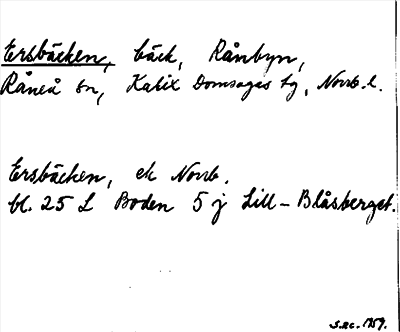 Ersbäcken, bäck, Rånbyn,
Råneå sn, Kalix Domsagas tg, Norrb. l.
Ersbäcken, ek Norrb.
bl. 25 L Boden 5 j Lill-Blåsberget.
S.Rc. 1959.